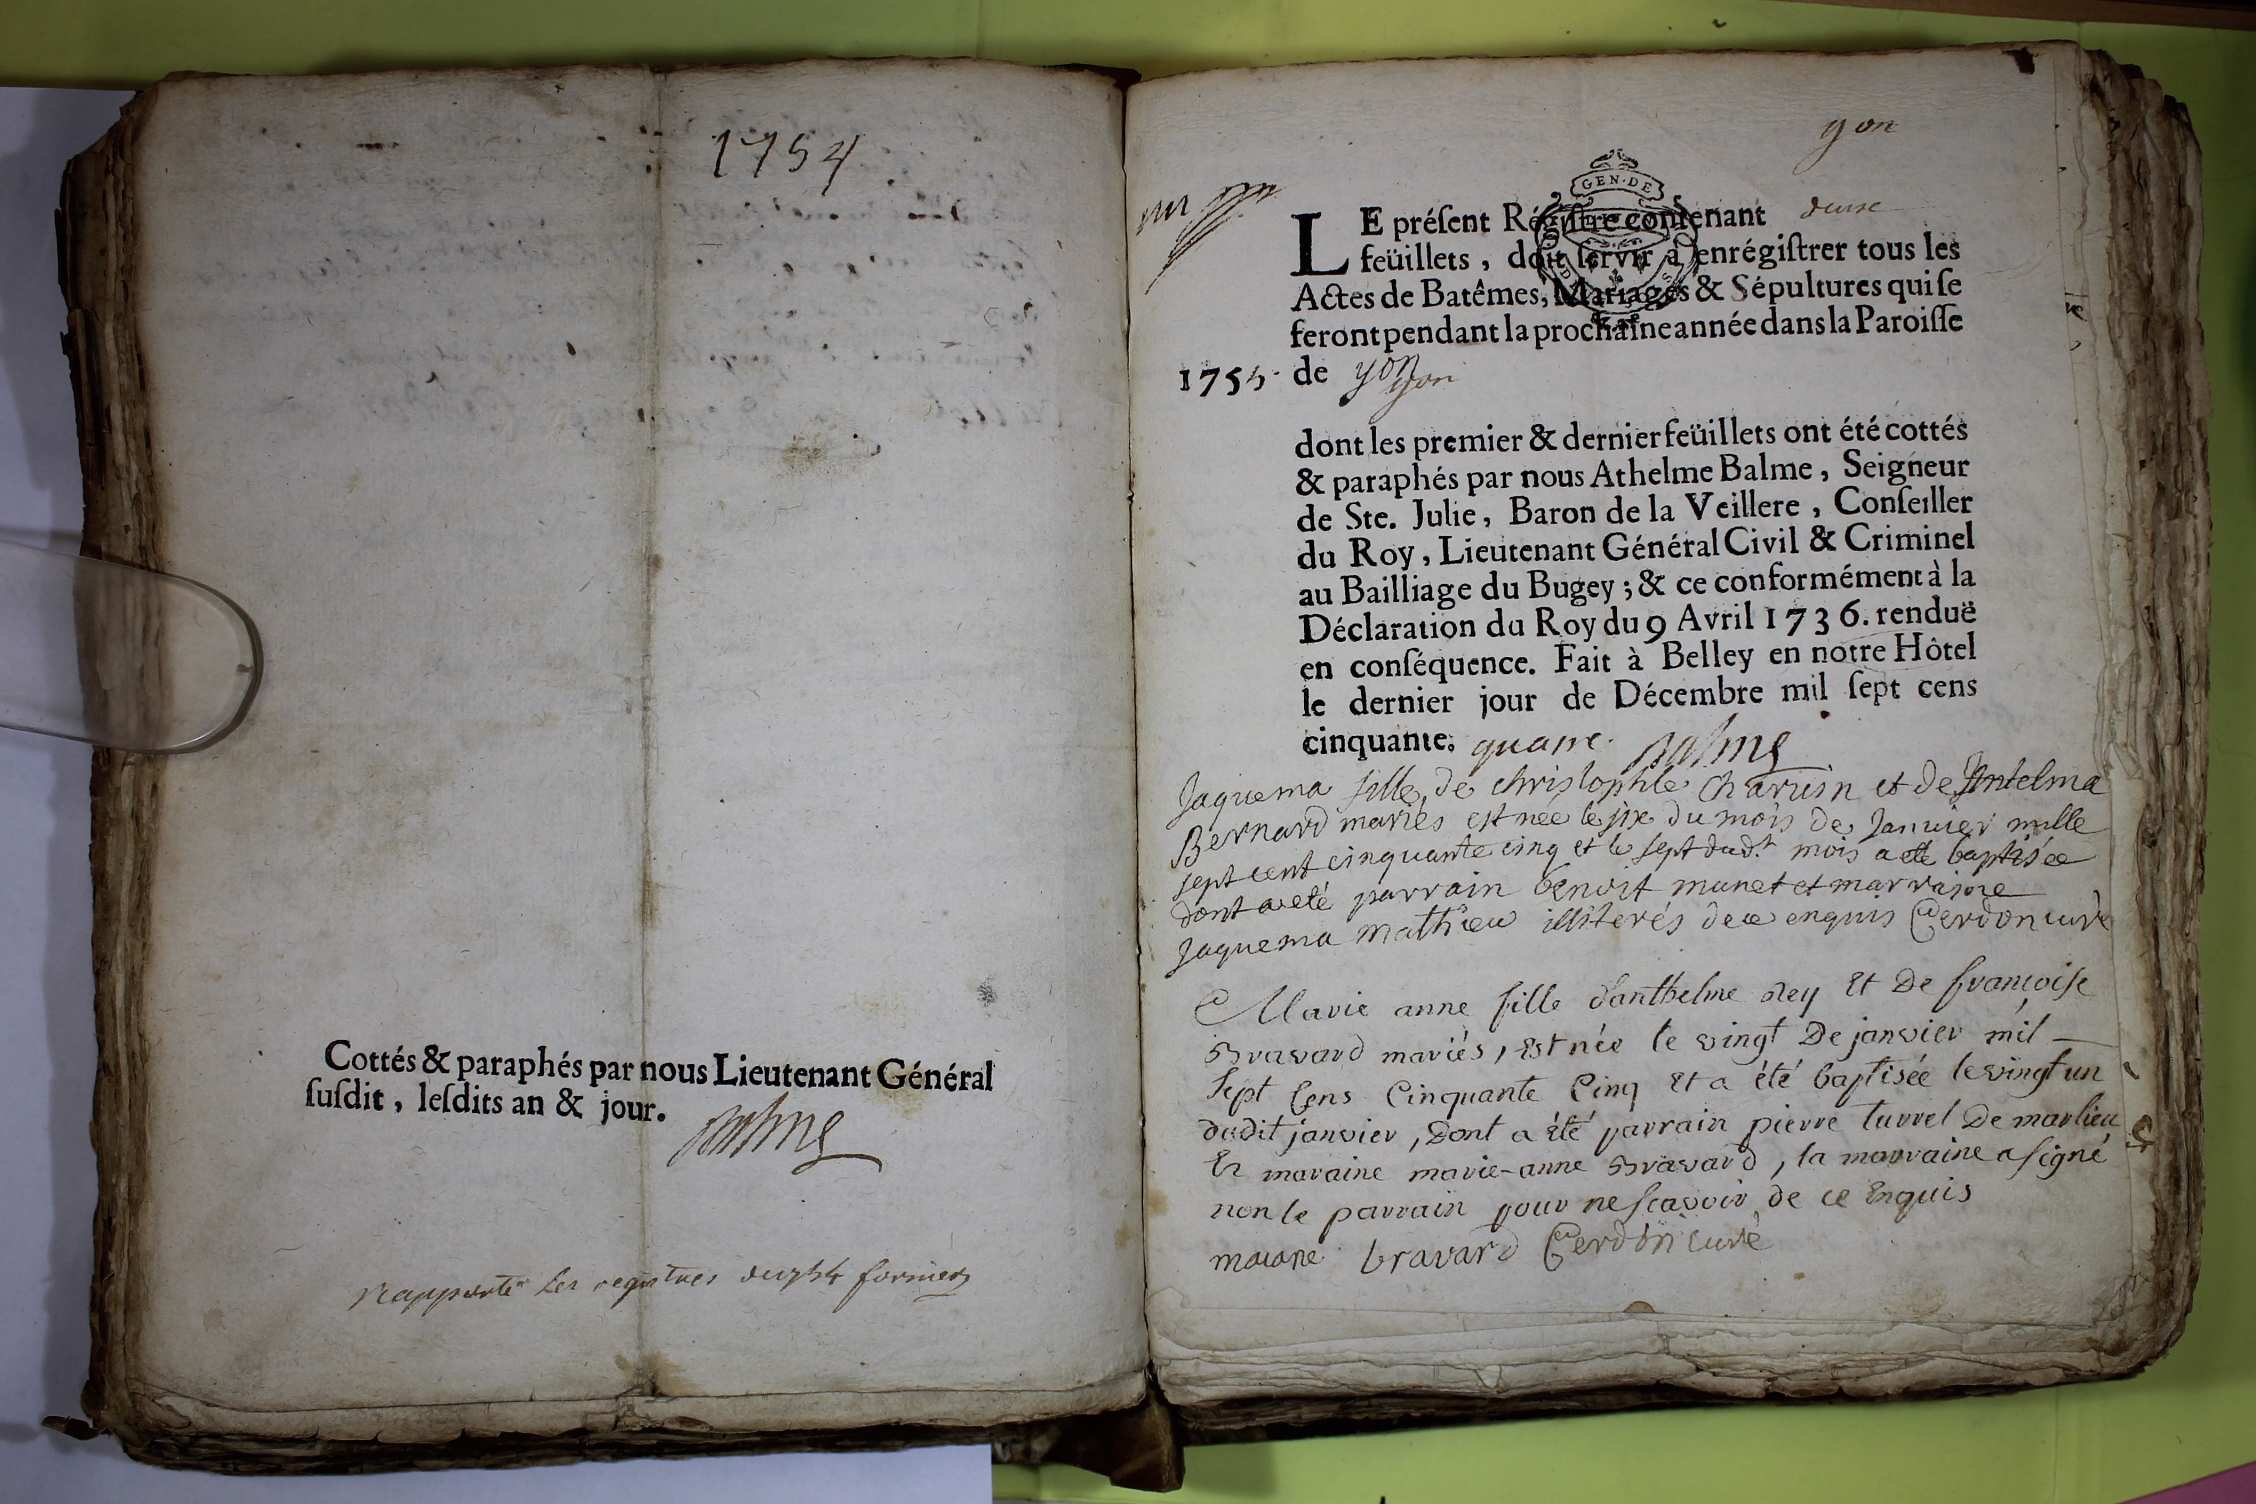 1754
Cottés & paraphés par nous Lieutenant Général
suſdit, leſdits an & jour.
Balme
Rapporté les registres du 1754 former
yon
GEN · DE
LE préſent Régiſtre contenant douse
feüillets, doit ſervir à enrégiſtrer tous les
Actes de Batêmes, Mariages & Sépultures qui ſe
feront pendant la prochaine année dans la Paroiſſe
1755. de yon
yon
dont les premier & dernier feüillets ont été cottés
& paraphés par nous Athelme Balme, Seigneur
de Ste. Julie, Baron de la Veillere, Conſeiller
du Roy, Lieutenant Général Civil & Criminel
au Bailliage du Bugey; & ce conformément à la
Déclaration du Roy du 9 Avril 1736. renduë
en conſéquence. Fait à Belley en notre Hôtel
le dernier jour de Décembre mil ſept cens
cinquante. quatre. Balme
Jaquema fille de christophle Charvin et de Antelma
Bernard mariés est née le six du mois de Janvier mille
sept cent cinquante cinq et le sept dud.t mois a eté baptisée
dont a eté parrain benoit munet et marraine
Jaquema mathieu illiterés de ce enquis Cerdon curé
Marie anne fille d'anthelme Rey Et De françoise
Bravard mariés, est née le vingt De janvier mil
Sept Cens Cinquante Cinq Et a été baptisée le vingt un
dudit janvier, Dont a été parrain pierre turrel De marlieu
Et maraine marie-anne Bravard, la marraine a signé
non le parrain pour ne scavoir de ce Enquis
bravard Cerdon curé